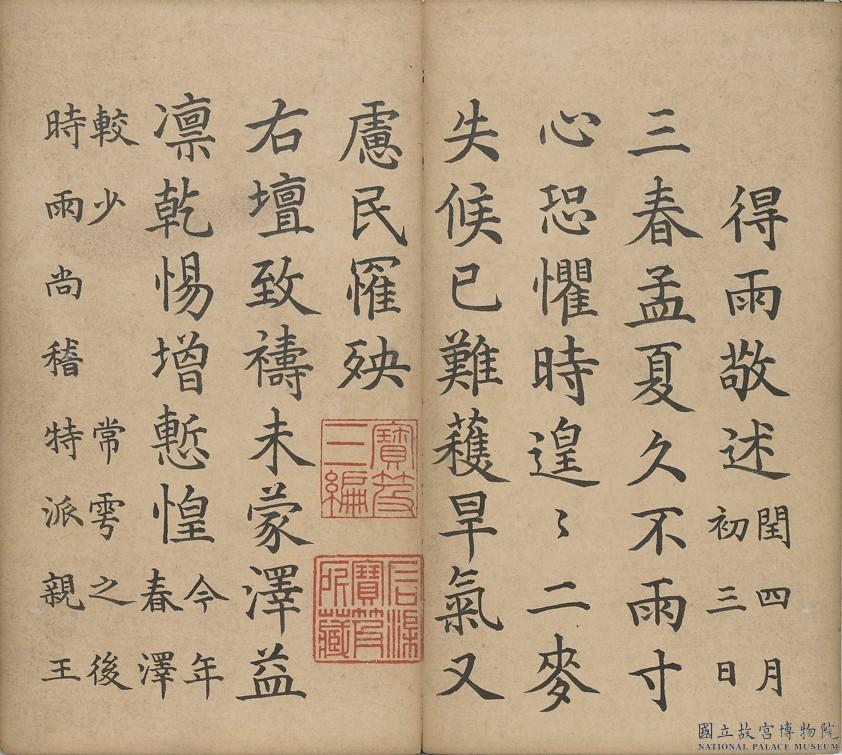 得雨敬述
閏四月
初三日
三春孟夏久不雨寸
心恐懼時遑〻二麥
失候已難穫旱氣又
慮民罹殃
寶笈
三編
石渠
寶笈
所藏
右壇致禱未蒙澤益
凛乾惕增慙惶
今年
春澤
較少 常雩之後
時雨尚稽特派親王
國立故宮博物院
NATIONAL PALACE MUSEUM